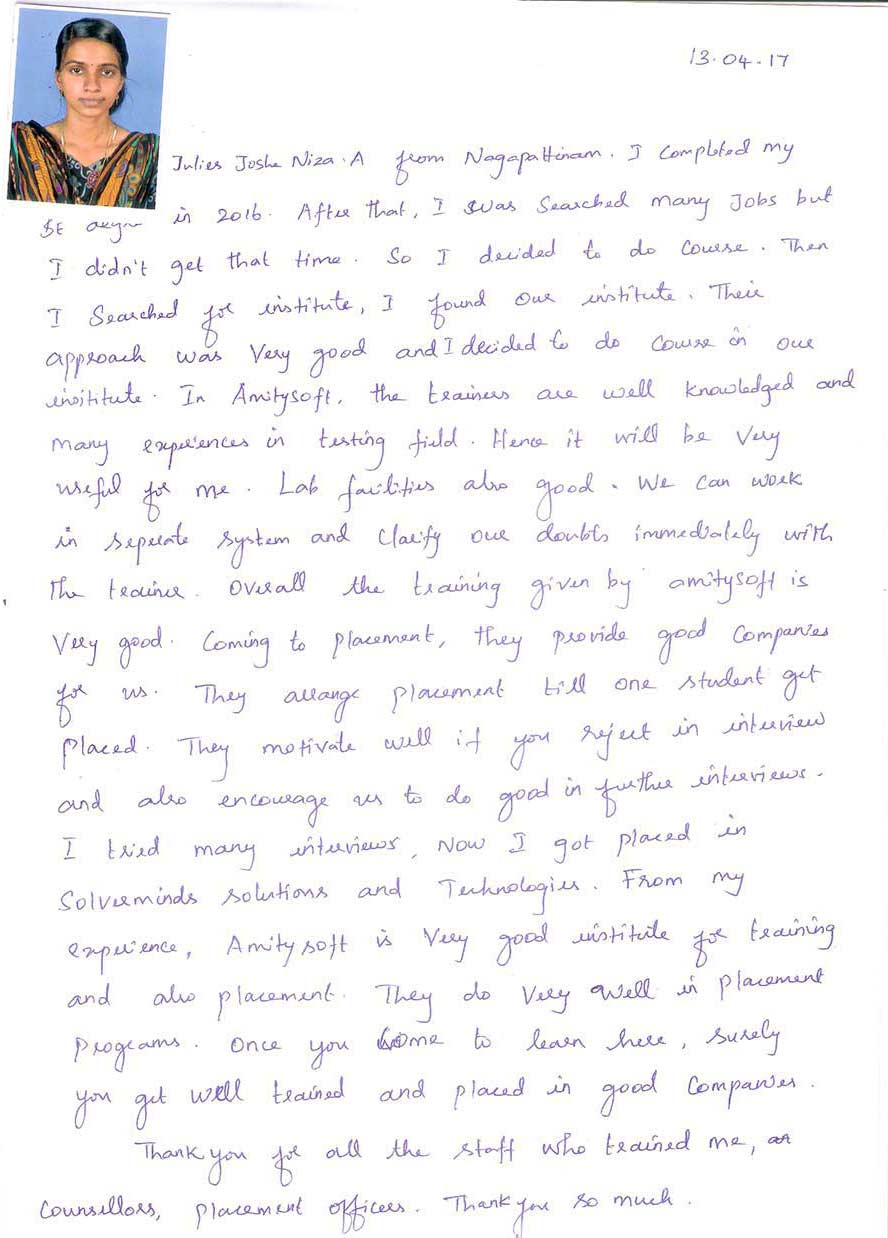 13.04.17
Julies Joshe Niza.A from Nagapattinam. I completed my
BE in 2016. After that, I was searched many Jobs but
I didn't get that time. So I decided to do course. Then
I Searched for institute, I found our institute. Their
approach was very good and I decided to do course in our
institute. In Amitysoft, the trainers are well knowledged and
many experiences in testing field. Hence it will be very
useful for me. Lab facilities also good. We can work
in seperate system and clarify our doubts immediately with
the trainer. Overall the training given by amitysoft is
very good. Coming to placement, they provide good companies
for us. They arrange placement till one student get
placed. They motivate well if you reject in interview
and also encourage us to do good in further interviews.
I tried many interviews, Now I got placed in
Solverminds solutions and Technologies. From my
experience, Amitysoft is very good institute for training
and also placement. They do very well in placement
programs. Once you come to learn here, surely
you get well trained and placed in good companies.
Thank you for all the staff who trained me,
counsellors, placement officers. Thank you so much.